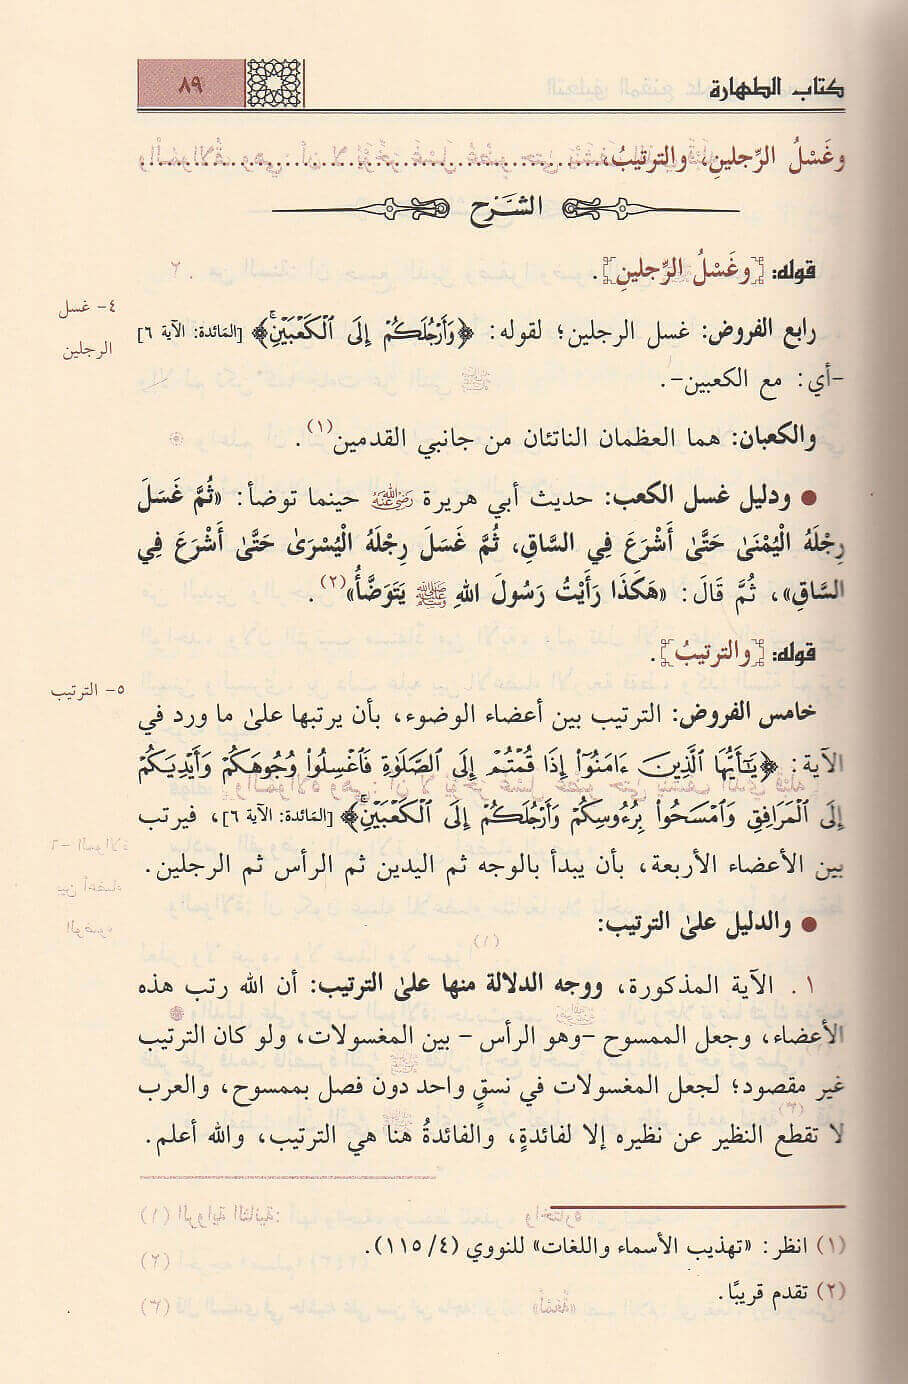 كتاب الطهارة
٨٩
وغَسْلُ الرِّجلينِ، والترتيبُ،
الشَّرْح
قوله: [وغَسْلُ الرِّجلينِ].
٤- غسل
الرجلين
رابع الفروض: غسل الرجلين؛ لقوله: ﴿وَأَرْجُلَكُمْ إِلَى ٱلْكَعْبَيْنِ﴾ [المَائدة: الآية ٦]
-أي: مع الكعبين-.
والكعبان: هما العظمان الناتئان من جانبي القدمين(١).
● ودليل غسل الكعب: حديث أبي هريرة رَضِيَ اللهُ عَنْهُ حينما توضأ: «ثُمَّ غَسَلَ
رِجْلَهُ الْيُمْنَىٰ حَتَّىٰ أَشْرَعَ فِي السَّاقِ، ثُمَّ غَسَلَ رِجْلَهُ الْيُسْرَىٰ حَتَّىٰ أَشْرَعَ فِي
السَّاقِ»، ثُمَّ قَالَ: «هَكَذَا رَأَيْتُ رَسُولَ اللهِ ﷺ يَتَوَضَّأُ»(٢).
قوله: [والترتيبُ].
٥- الترتيب
خامس الفروض: الترتيب بين أعضاء الوضوء، بأن يرتبها علىٰ ما ورد في
الآية: ﴿يَٰٓأَيُّهَا ٱلَّذِينَ ءَامَنُوٓا۟ إِذَا قُمْتُمْ إِلَى ٱلصَّلَوٰةِ فَٱغْسِلُوا۟ وُجُوهَكُمْ وَأَيْدِيَكُمْ
إِلَى ٱلْمَرَافِقِ وَٱمْسَحُوا۟ بِرُءُوسِكُمْ وَأَرْجُلَكُمْ إِلَى ٱلْكَعْبَيْنِ﴾ [المَائدة: الآية ٦]، فيرتب
بين الأعضاء الأربعة، بأن يبدأ بالوجه ثم اليدين ثم الرأس ثم الرجلين.
● والدليل علىٰ الترتيب:
١. الآية المذكورة، ووجه الدلالة منها علىٰ الترتيب: أن الله رتب هذه
الأعضاء، وجعل الممسوح -وهو الرأس- بين المغسولات، ولو كان الترتيب
غير مقصود؛ لجعل المغسولات في نسقٍ واحد دون فصل بممسوح، والعرب
لا تقطع النظير عن نظيره إلا لفائدةٍ، والفائدةُ هنا هي الترتيب، والله أعلم.
(١) انظر: «تهذيب الأسماء واللغات» للنووي (٤/ ١١٥).
(٢) تقدم قريبًا.